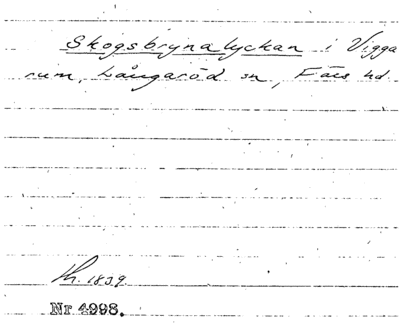 Skogsbrynalyckan i Vigga
rum, Långaröd sn, Färs hd
Lh. 1839.
Nr 4998.